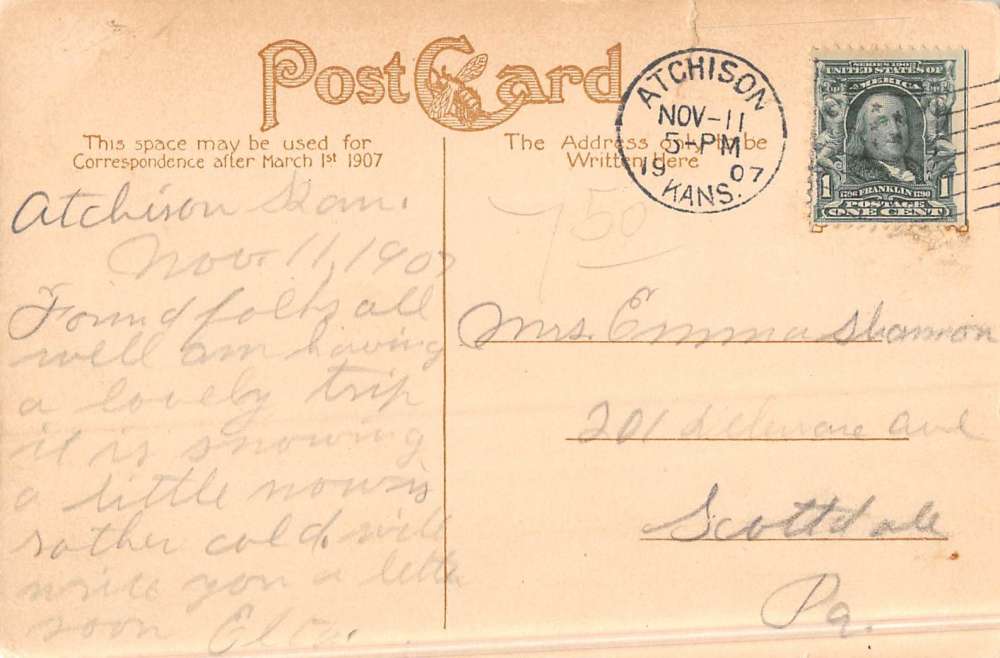 Post Card
This space may be used for
Correspondence after March 1st 1907
The Address only to be
Written Here
ATCHISON
NOV-11
5-PM
19 07
KANS.
SERIES 1902
UNITED STATES OF
AMERICA
1 1706 FRANKLIN 1790 1
POSTAGE
ONE CENT
750
Atchison Kan.
Nov. 11, 1907
Found folks all
well am having
a lovely trip
it is snowing
a little now is
rather cold. will
write you a letter
soon
Mrs. Emma Shannon
201 Delaware Ave
Scottdale
Pa.